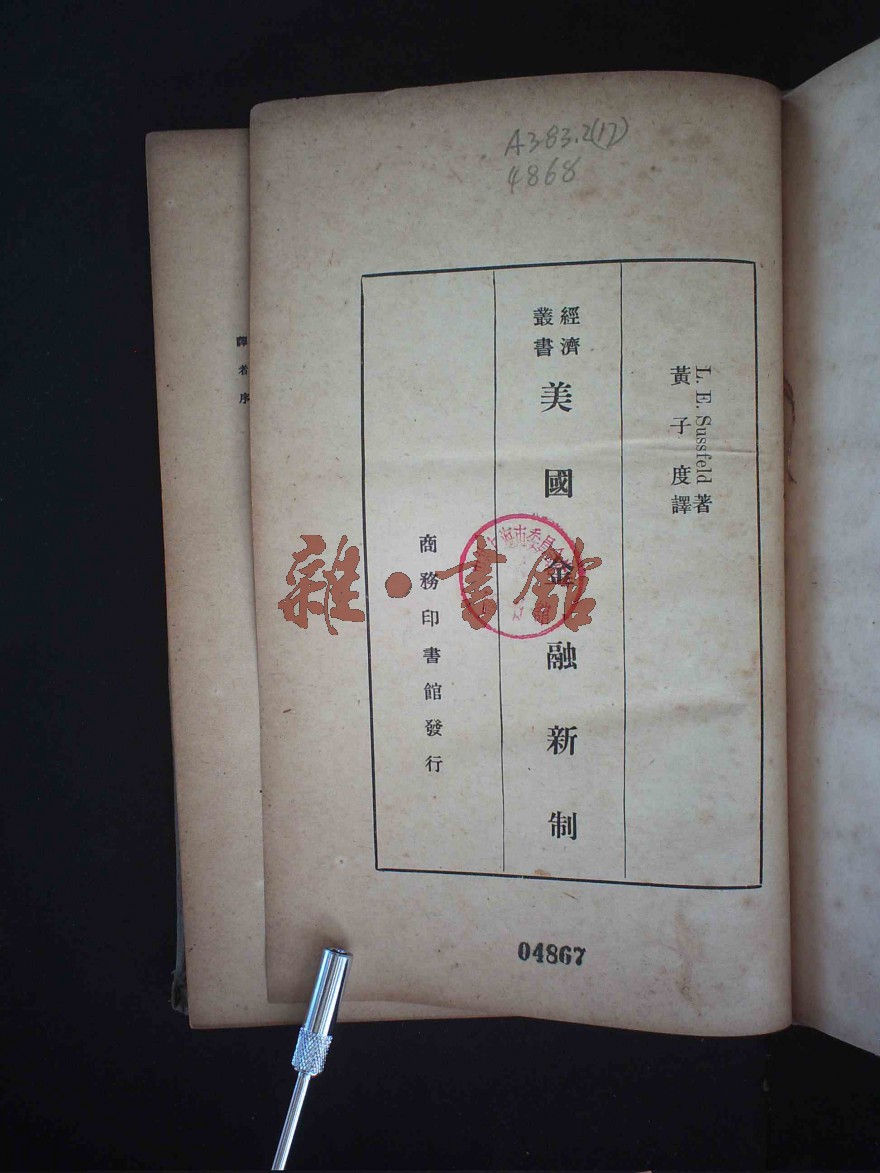 A383.2(17)
4868
L. E. Sussfeld 著
黃子度譯
經濟
叢書
美國金融新制
商務印書館發行
譯者序
上海市委員
04867
雜·書館